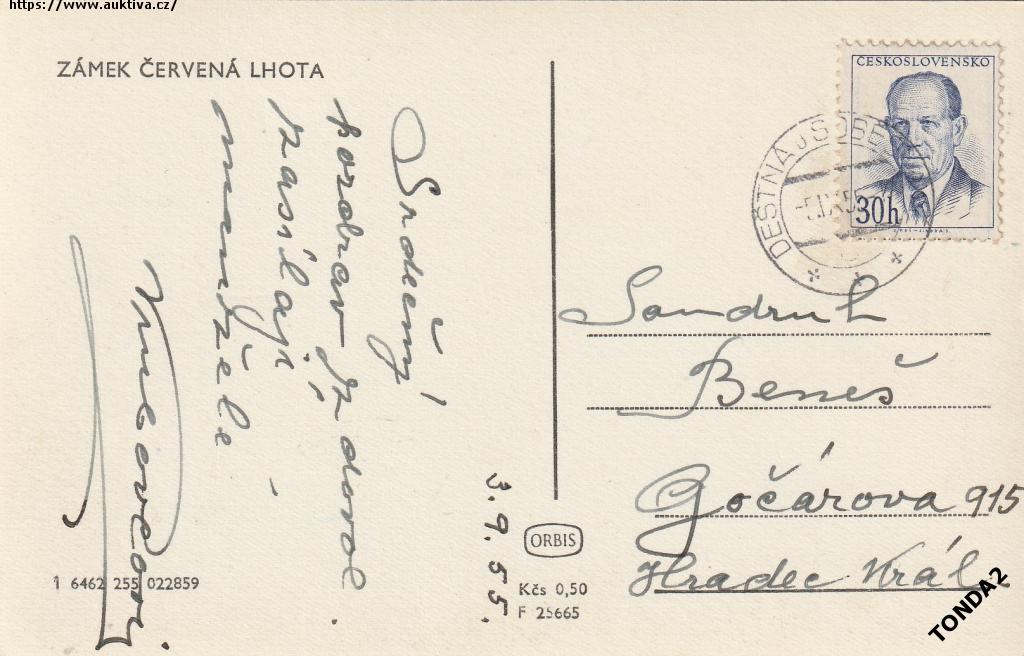 https://www.auktiva.cz/
ZÁMEK ČERVENÁ LHOTA
Srdečný
pozdrav z dovol
zasílají
manželé
3.9.55.
1 6462 255 022859
ORBIS
Kčs 0,50
F 25665
ČESKOSLOVENSKO
30h
DEŠTNÁ
Soudruh
Beneš
Gočárova 915
Hradec Král
TONDA2